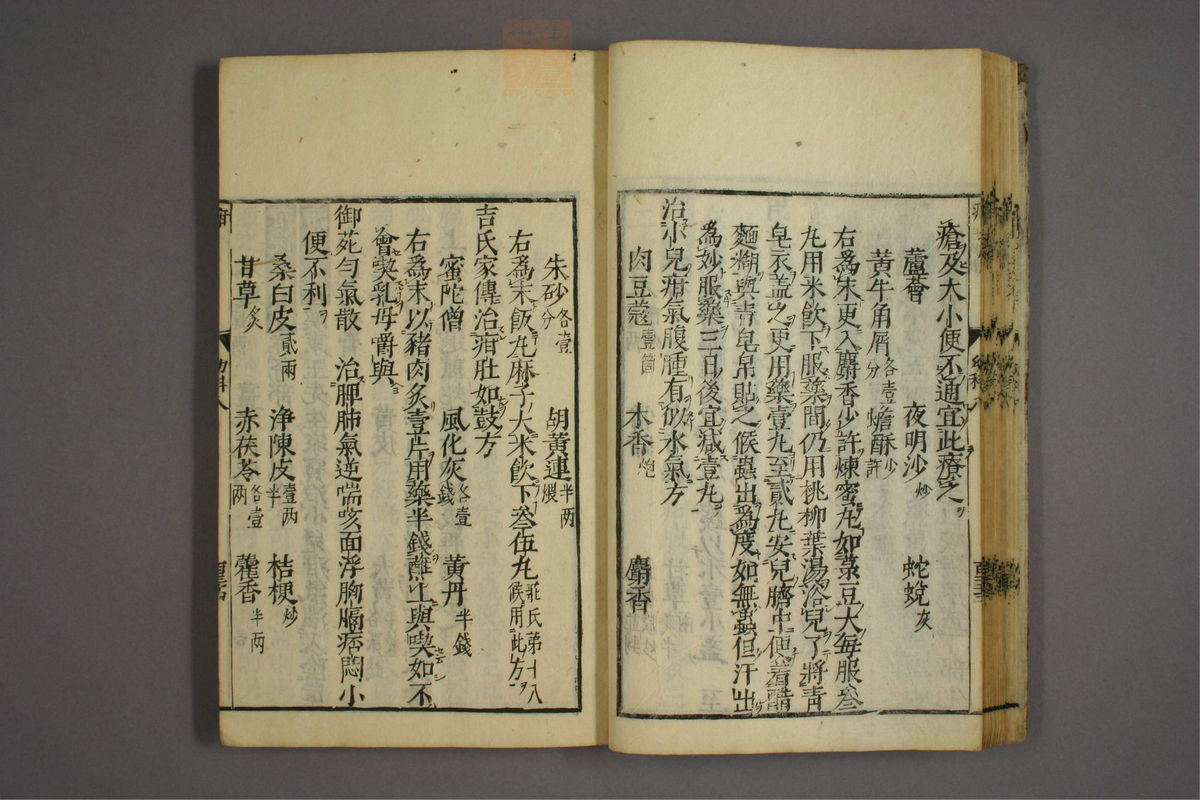 瘡及大小便不通宜此療之
蘆薈 夜明沙炒 蛇蛻灰
黃牛角屑各壹分 蟾酥少許
右為末更入麝香少許煉蜜丸如菉豆大每服叄
丸用米飲下服藥間仍用桃柳葉湯浴兒了將青
皂衣盖之更用藥壹丸至貳丸安兒臍中便着醋
麵糊與青皂帛貼之候蟲出為度如無蟲但汗出
為妙服藥三日後宜減壹丸
治小兒疳氣腹腫有似水氣方
肉豆蔻壹箇 木香炮 麝香
朱砂各壹分 胡黃連半兩
右為末飯丸麻子大米飲下叄伍丸莊氏第十八候用此方
吉氏家傳治疳肚如鼓方
蜜陀僧 風化灰各壹錢 黃丹半錢
右為末以豬肉炙壹片用藥半錢蘸上與喫如不
會喫乳母嚼與
御苑勻氣散 治脾肺氣逆喘咳面浮胸膈痞悶小
便不利
桑白皮貳兩 浄陳皮壹两半 桔梗炒
甘草炙 赤茯苓各壹两 藿香半两
幼科八